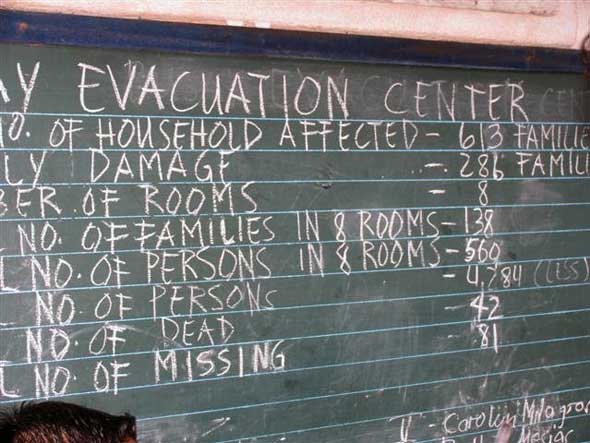 AY EVACUATION CENTER
NO. OF HOUSEHOLD AFFECTED - 613 FAMILIE
LY DAMAGE - 286 FAMILI
BER OF ROOMS - 8
NO. OF FAMILIES IN 8 ROOMS - 138
L NO. OF PERSONS IN 8 ROOMS - 560
NO. OF PERSONS - 4,284 (LESS)
NO. OF DEAD - 42
L NO. OF MISSING - 81
V - Carolyn Milagros